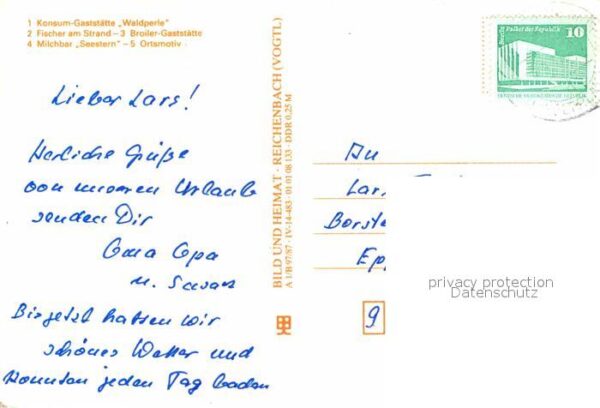 1 Konsum-Gaststätte „Waldperle"
2 Fischer am Strand – 3 Broiler-Gaststätte
4 Milchbar „Seestern" – 5 Ortsmotiv
Lieber Lars!
Herliche Grüße
von unseren Urlaub
senden Dir
Oma Opa
u.
Bis jetzt hatten wir
schönes Wetter und
konnten jeden Tag baden
BILD UND HEIMAT · REICHENBACH (VOGTL)
A 1/B 97/87 · IV-14-483 · 01 01 08 133 · DDR 0,25 M
Berlin Palast der Republik
10
An
Lar
Borste
Epp
9
privacy protection
Datenschutz